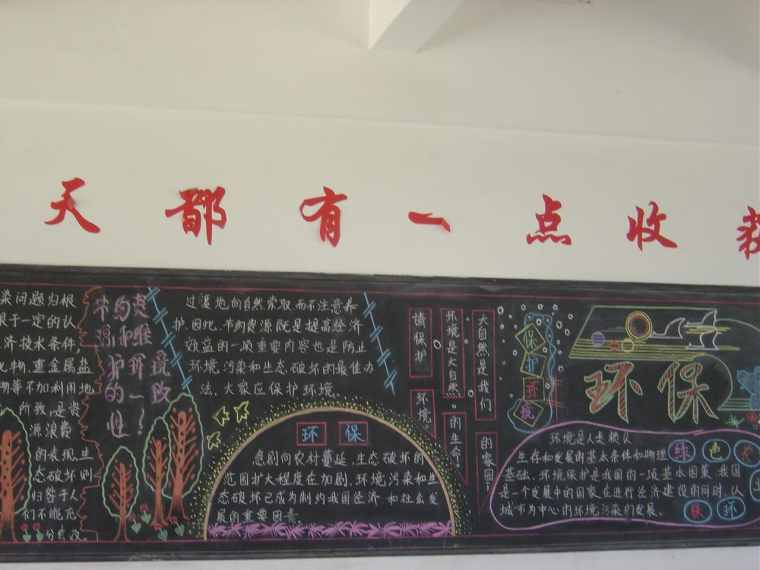 天都有一点收获
染问题为根
于一定的认
济技水条件,
物,重金属盐
物等不加利用地
所致,是资
源浪费
的表现,生
态破坏则
归咎于人
们不能充
过濫地向自然索取而不注意养
护,因此,节约资源既是提高经济
效益的一项重要内容也是防止
环境污染和生态破坏的最佳办
法,大家应保护环境。
环保
急剧向农村蔓延,生态破坏的
范围扩大程度在加剧,环境污染和生
态破坏已成为制约我国经济和社会发
展的重要因素。
请保护
环境
环境是大自然
的生命!
大自然是我们
的家园!
保护环境
环保
环境是人类赖以
生存和发展的基本条件和物理
基础,环境保护是我国的一项基水国策,我国
是一个发展中的国家,在进行经济建设的同时,以
城市为中心的环境污染的发展、
绿色
环